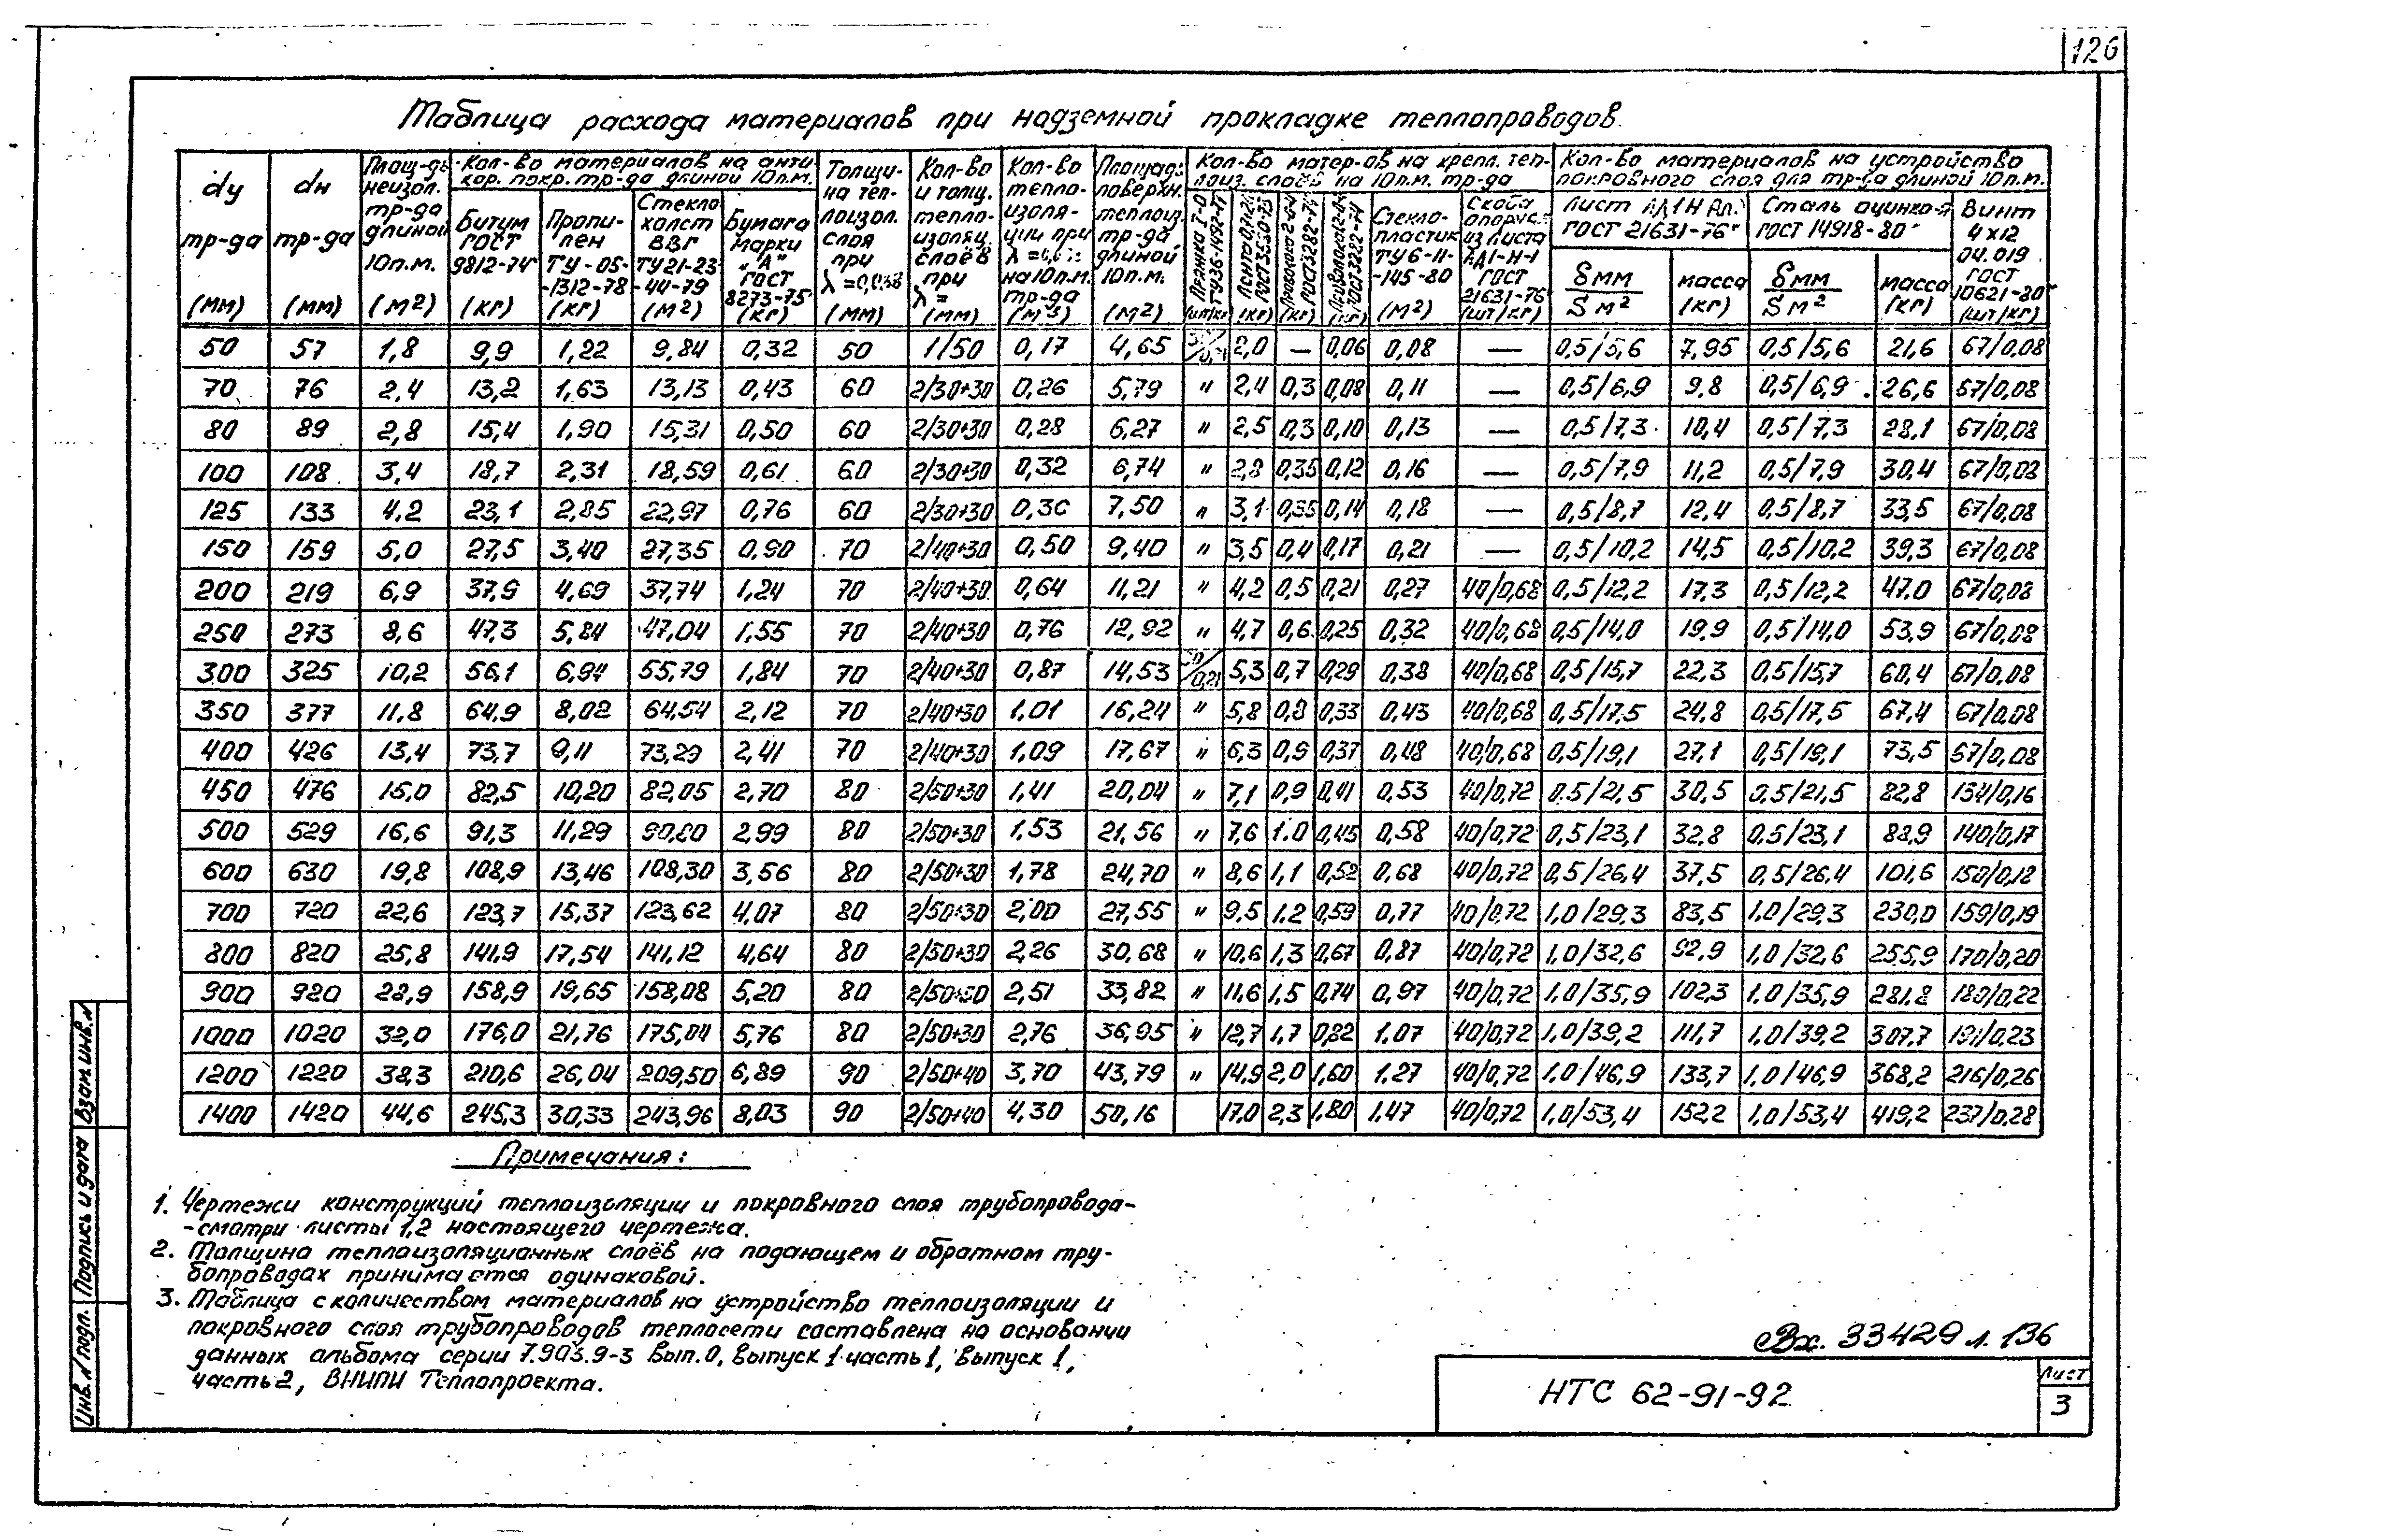 126
Таблица расхода материалов при надземной прокладке теплопроводов.
dу тр-да (мм)
dн тр-да (мм)
Площ-дь неизол. тр-да длиной 10п.м. (м2)
Кол-во материалов на анти кор. покр. тр-да длиной 10п.м.
Битум ГОСТ 9812-74 (кг)
Пропилен ТУ-05--1312-78 (кг)
Стекло холст ВВГ ТУ21-23-44-79 (м2)
Бумага марки "А" ГОСТ 8273-75 (кг)
Толщина теплоизол. слоя при λ=0,038 (мм)
Кол-во и толщ. теплоизоляц. слоёв при λ= (мм)
Кол-во теплоизоляции при на 10п.м. тр-да (м3)
Площадь поверхн. теплоиз. тр-да длиной 10п.м. (м2)
Кол-во матер-ов на крепл. теплоиз. слоёв на 10п.м. тр-да
Пряжка Т-0 ТУ36-1492-77 (шт/кг)
Лента ГОСТ3560-73 (кг)
Проволока ГОСТ3282-74 (кг)
Проволока ГОСТ3282-74 (кг)
Стеклопластик ТУ6-11--145-80 (м2)
Скоба опорус. из листа АД1-Н-1 ГОСТ 21631-76 (шт/кг)
Кол-во материалов на устройство покровного слоя для тр-да длиной 10п.м.
Лист АД1Н ГОСТ 21631-76
δмм / S м2 масса (кг)
Сталь оцинко-я ГОСТ 14918-80
δмм / S м2 масса (кг)
Винт 4х12 04.019 ГОСТ 10621-80 (шт/кг)
50 57 1,8 9,9 1,22 9,84 0,32 50 1/50 0,17 4,65 2,0 — 0,06 0,08 — 0,5/5,6 7,95 0,5/5,6 21,6 67/0,08
70 76 2,4 13,2 1,63 13,13 0,43 60 2/30+30 0,26 5,79 " 2,4 0,3 0,08 0,11 — 0,5/6,9 9,8 0,5/6,9 26,6 67/0,08
80 89 2,8 15,4 1,90 15,31 0,50 60 2/30+30 0,28 6,27 " 2,5 0,3 0,10 0,13 — 0,5/7,3 10,4 0,5/7,3 28,1 67/0,08
100 108 3,4 18,7 2,31 18,59 0,61 60 2/30+30 0,32 6,74 " 2,8 0,35 0,12 0,16 — 0,5/7,9 11,2 0,5/7,9 30,4 67/0,08
125 133 4,2 23,1 2,85 22,97 0,76 60 2/30+30 7,50 " 3,1 0,35 0,14 0,18 — 0,5/8,7 12,4 0,5/8,7 33,5 67/0,08
150 159 5,0 27,5 3,40 27,35 0,90 70 2/40+30 0,50 9,40 " 3,5 0,4 0,17 0,21 — 0,5/10,2 14,5 0,5/10,2 39,3 67/0,08
200 219 6,9 37,9 4,69 37,74 1,24 70 2/40+30 0,64 11,21 " 4,2 0,5 0,21 0,27 40/0,68 0,5/12,2 17,3 0,5/12,2 47,0 67/0,08
250 273 8,6 47,3 5,84 47,04 1,55 70 2/40+30 0,76 12,92 " 4,7 0,6 0,25 0,32 40/0,68 0,5/14,0 19,9 0,5/14,0 53,9 67/0,08
300 325 10,2 56,1 6,94 55,79 1,84 70 2/40+30 0,87 14,53 /0,21 5,3 0,7 0,29 0,38 40/0,68 0,5/15,7 22,3 0,5/15,7 60,4 67/0,08
350 377 11,8 64,9 8,02 64,54 2,12 70 2/40+30 1,01 16,24 " 5,8 0,8 0,33 0,43 40/0,68 0,5/17,5 24,8 0,5/17,5 67,4 67/0,08
400 426 13,4 73,7 9,11 73,29 2,41 70 2/40+30 1,09 17,67 " 6,3 0,9 0,37 0,48 40/0,68 0,5/19,1 27,1 0,5/19,1 73,5 67/0,08
450 476 15,0 82,5 10,20 82,05 2,70 80 2/50+30 1,41 20,04 " 7,1 0,9 0,41 0,53 40/0,72 0,5/21,5 30,5 0,5/21,5 82,8 134/0,16
500 529 16,6 91,3 11,29 90,80 2,99 80 2/50+30 1,53 21,56 " 7,6 1.0 0,45 0,58 40/0,72 0,5/23,1 32,8 0,5/23,1 88,9 140/0,17
600 630 19,8 108,9 13,46 108,30 3,56 80 2/50+30 1,78 24,70 " 8,6 1,1 0,52 0,68 40/0,72 0,5/26,4 37,5 0,5/26,4 101,6 150/0,18
700 720 22,6 123,7 15,37 123,62 4,07 80 2/50+30 2,00 27,55 " 9,5 1.2 0,59 0,77 40/0,72 1,0/29,3 83,5 1,0/29,3 230,0 159/0,19
800 820 25,8 141,9 17,54 141,12 4,64 80 2/50+30 2,26 30,68 " 10,6 1,3 0,67 0,87 40/0,72 1,0/32,6 92,9 1,0/32,6 255,9 170/0,20
900 920 28,9 158,9 19,65 158,08 5,20 80 2/50+30 2,51 33,82 " 11,6 1,5 0,74 0,97 40/0,72 1,0/35,9 102,3 1,0/35,9 281,8 180/0,22
1000 1020 32,0 176,0 21,76 175,04 5,76 80 2/50+30 2,76 36,95 " 12,7 1,7 0,82 1.07 40/0,72 1,0/39,2 111,7 1,0/39,2 307,7 191/0,23
1200 1220 38,3 210,6 26,04 209,50 6,89 90 2/50+40 3,70 43,79 " 14,9 2,0 1,60 1.27 40/0,72 1,0/46,9 133,7 1,0/46,9 368,2 216/0,26
1400 1420 44,6 245,3 30,33 243,96 8,03 90 2/50+40 4,30 50,16 17,0 2,3 1,80 1.47 40/0,72 1,0/53,4 152,2 1,0/53,4 419,2 237/0,28
Примечания:
1. Чертежи конструкций теплоизоляции и покровного слоя трубопровода-
-смотри листы 1,2 настоящего чертежа.
2. Толщина теплоизоляционных слоёв на подающем и обратном тру-
бопроводах принимается одинаковой.
3. Таблица с количеством материалов на устройство теплоизоляции и
покровного слоя трубопроводов теплосети составлена на основании
данных альбома серии 7.903.9-3 вып.0, выпуск 1 часть 1, выпуск 1,
часть 2, ВНИПИ Теплопроекта.
Вх. 33429 л. 136
НТС 62-91-92
Лист
3
Взам. инв. №
Подпись и дата
Инв. № подл.